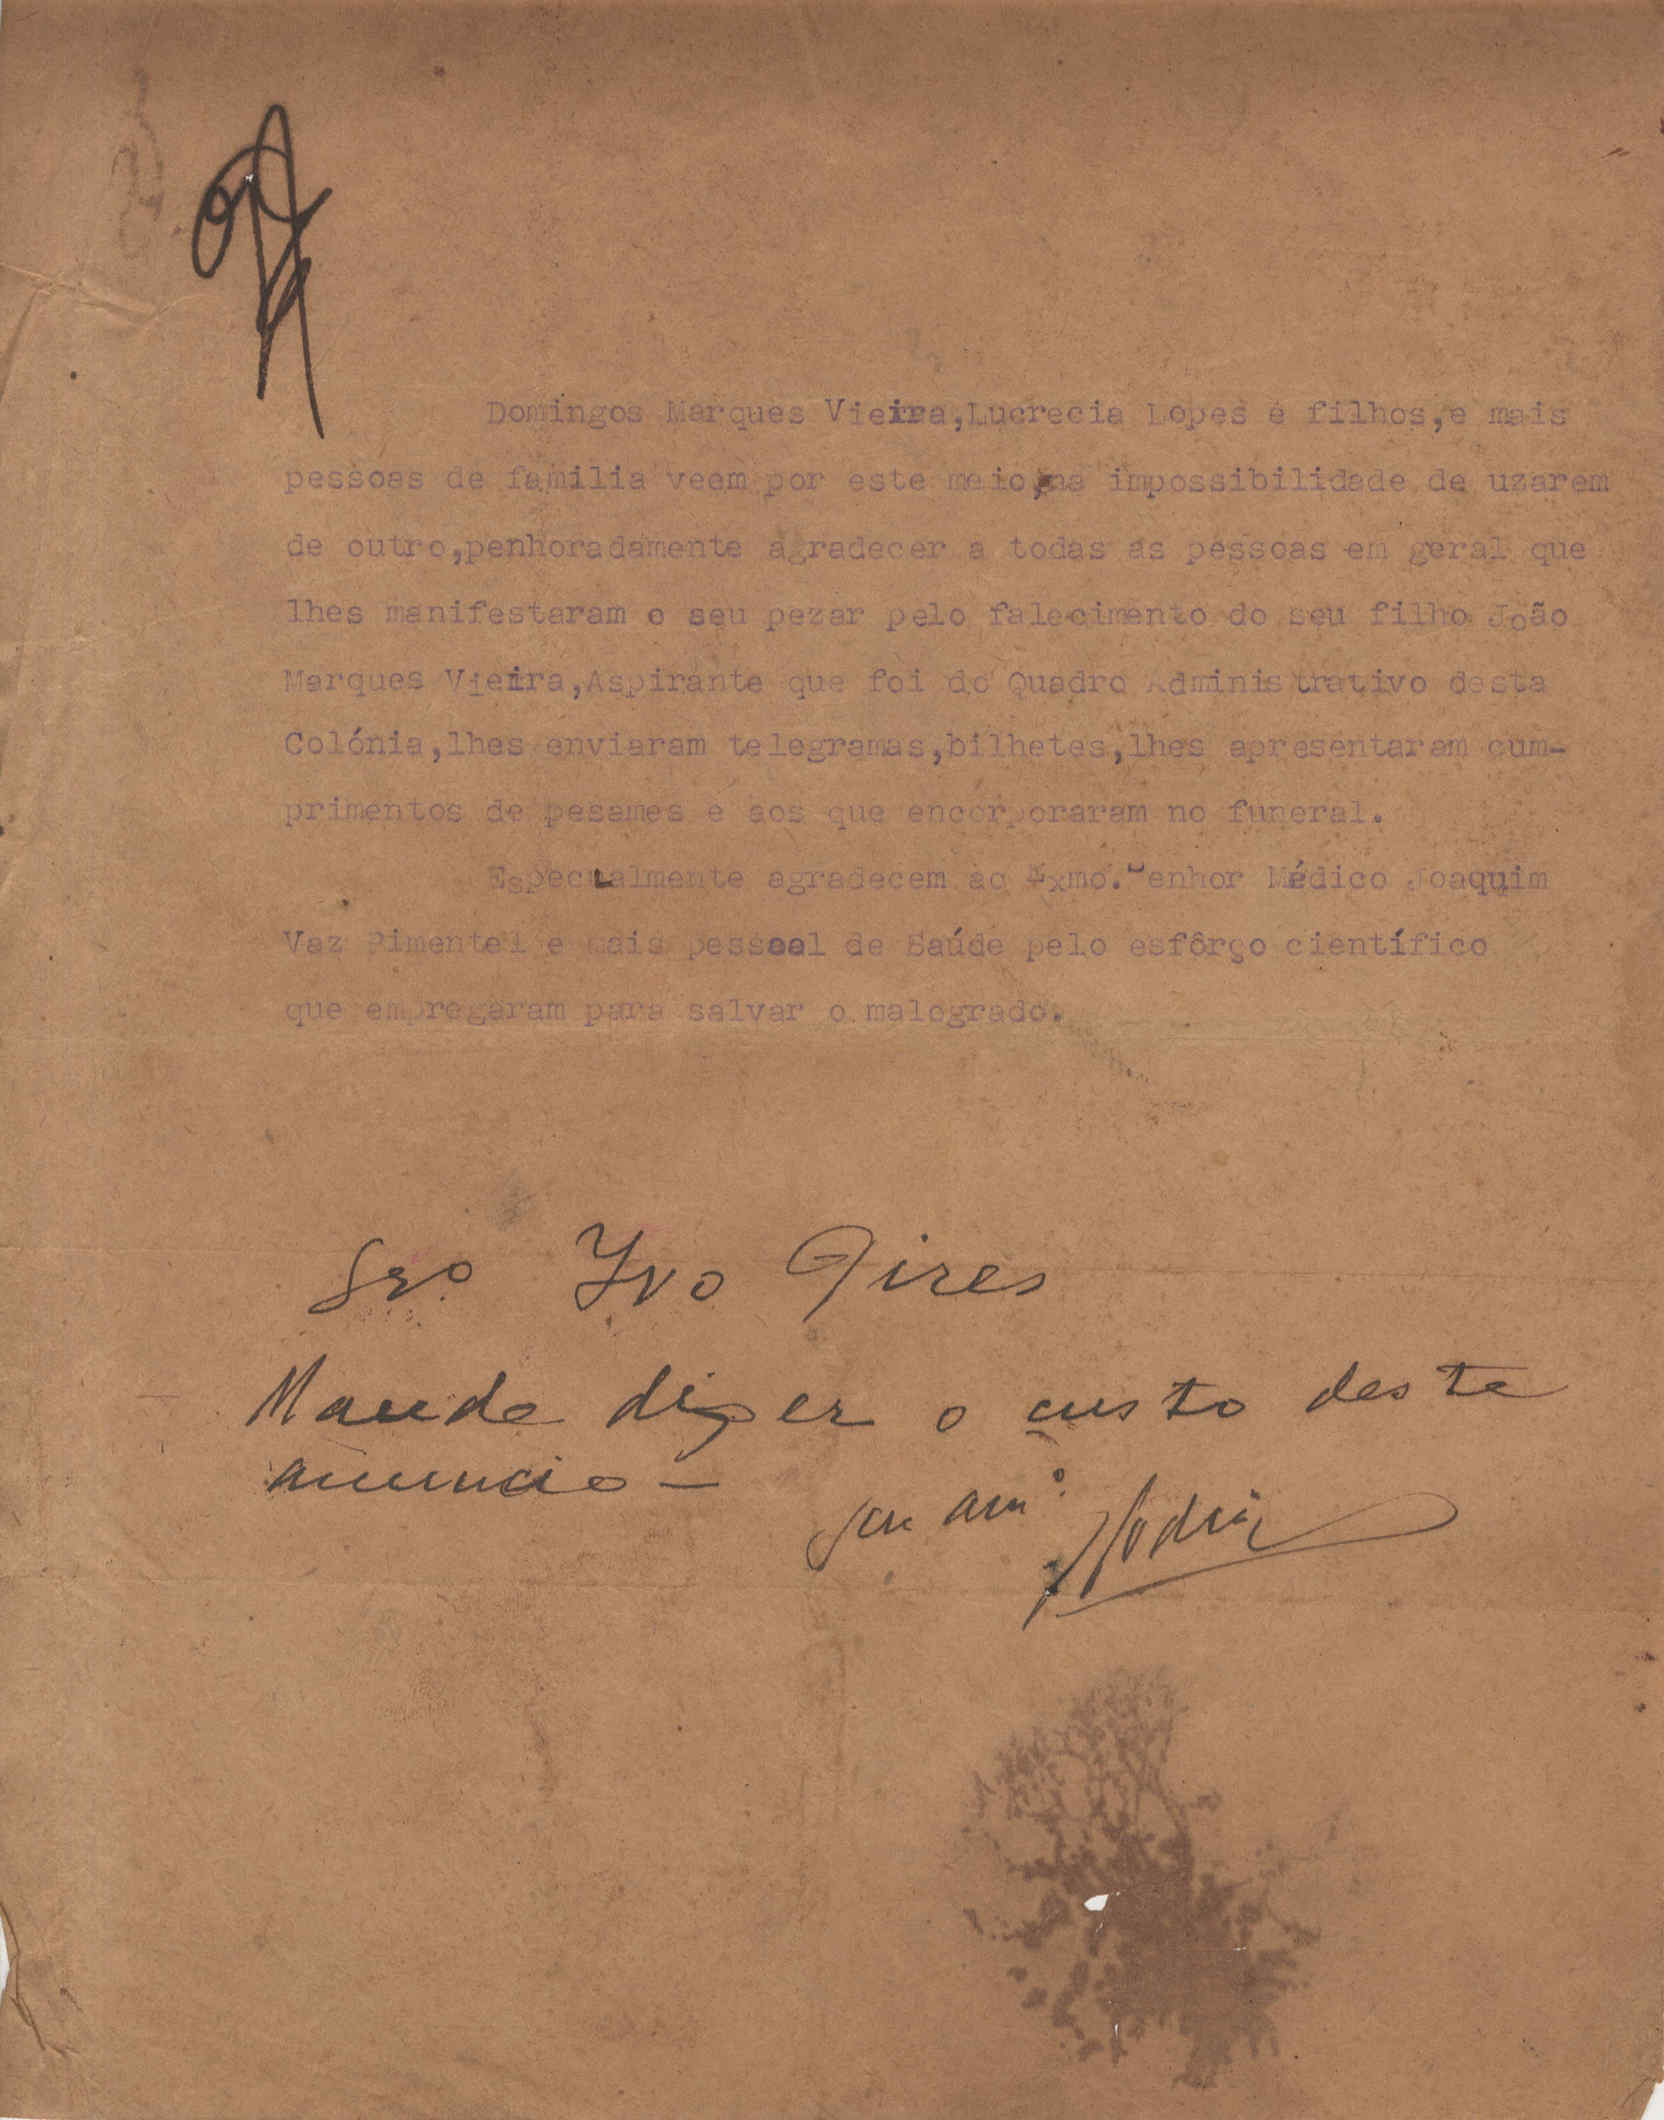 Domingos Marques Vieira,Lucrecia Lopes e filhos,e mais
pessoas de familia veem por este meio,na impossibilidade de uzarem
de outro,penhoradamente agradecer a todas as pessoas em geral que
lhes manifestaram o seu pezar pelo falecimento do seu filho João
Marques Vieira,Aspirante que foi do Quadro Administrativo desta
Colónia,lhes enviaram telegramas,bilhetes,lhes apresentaram cum-
primentos de pesames e aos que encorporaram no funeral.
Especialmente agradecem ao Exmo.Senhor Médico Joaquim
Vaz Pimentel e mais pessoal de Saúde pelo esfôrço científico
que empregaram para salvar o malogrado.
Snro Ivo Pires
Mande dizer o custo deste
anuncio —
seu amº